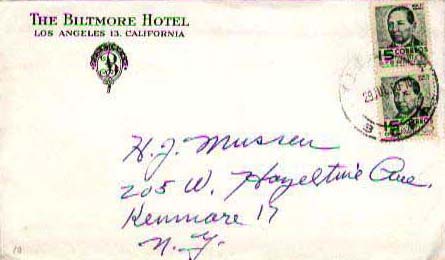 THE BILTMORE HOTEL
LOS ANGELES 13, CALIFORNIA
B
15 CORREOS
15
H. J. Mussen
205 W. Hazeltine Ave,
Kenmore 17
N. Y.